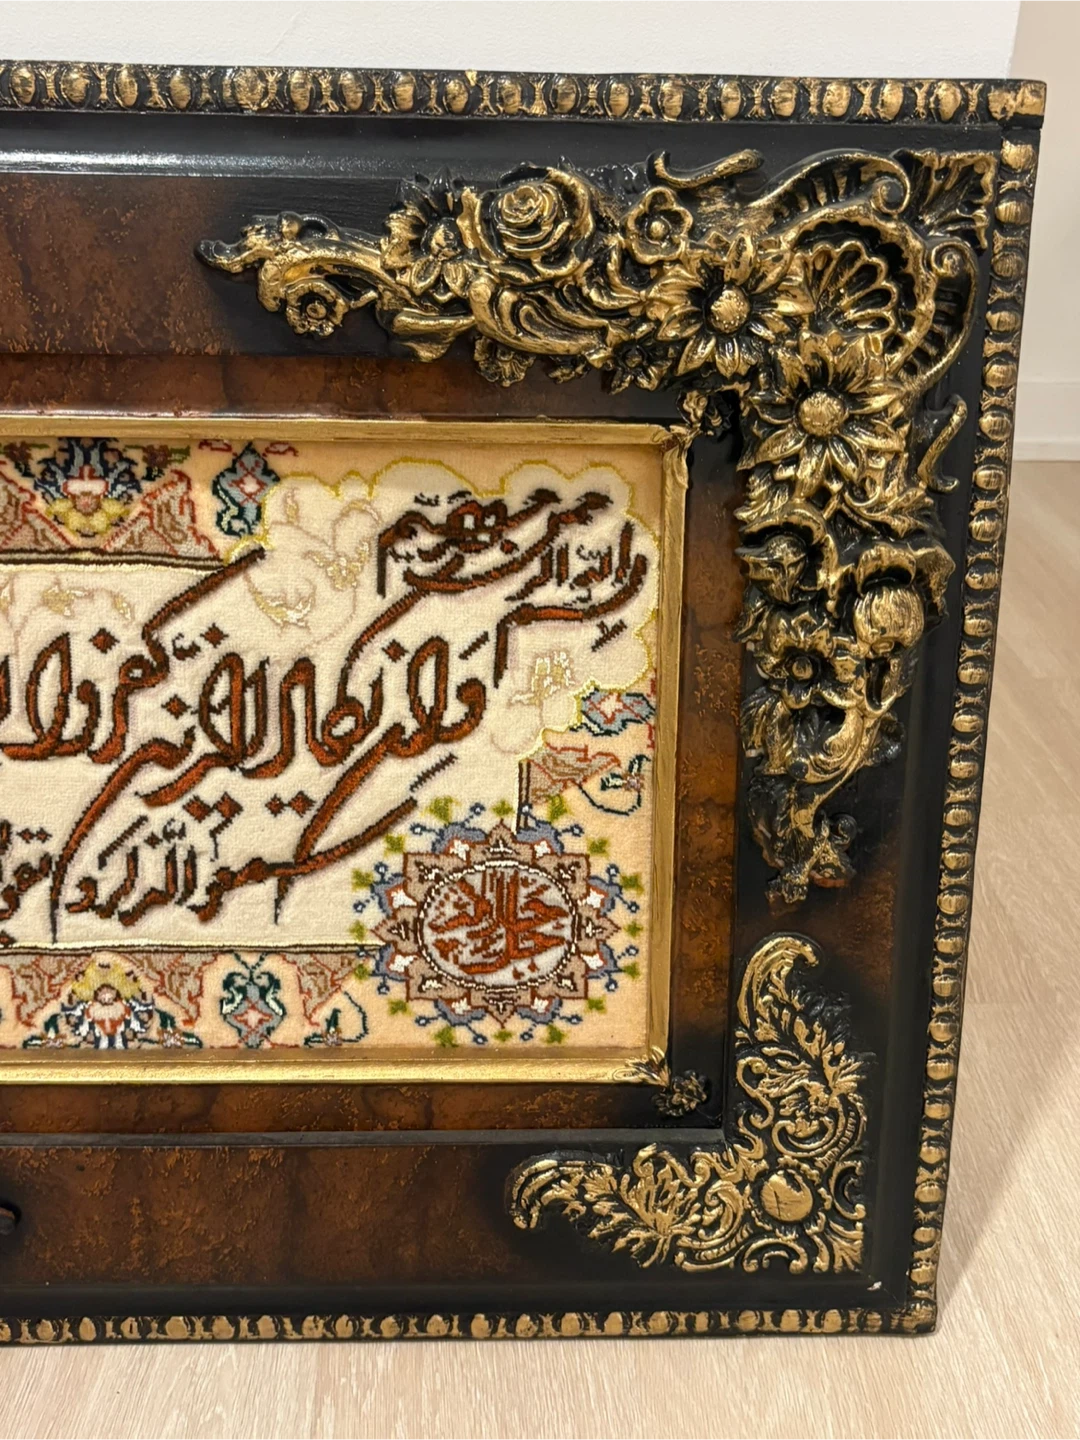 بسم الله الرحمن الرحيم
وان يكاد الذين كفروا
سمعوا الذكر و